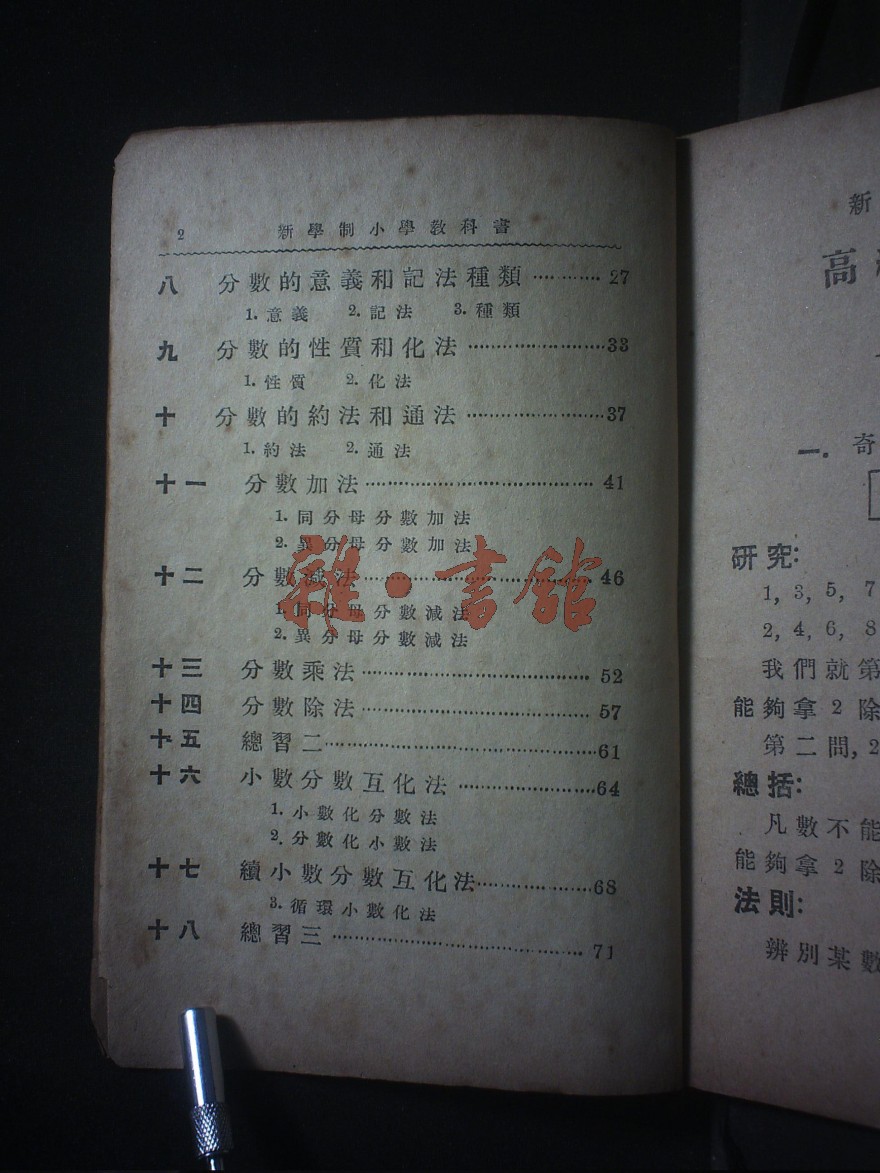 2 新學制小學教科書
八 分數的意義和記法種類…………27
1. 意義 2. 記法 3. 種類
九 分數的性質和化法……………………33
1. 性質 2. 化法
十 分數的約法和通法……………………37
1. 約法 2. 通法
十一 分數加法……………………………… 41
1. 同分母分數加法
2. 異分母分數加法
十二 分數減法……………………………… 46
1. 同分母分數減法
2. 異分母分數減法
十三 分數乘法……………………………… 52
十四 分數除法……………………………… 57
十五 總習二……………………………………61
十六 小數分數互化法 …………………64
1. 小數化分數法
2. 分數化小數法
十七 續小數分數互化法………………68
3. 循環小數化法
十八 總習三 ………………………………… 71
雜·書館
新
高
一. 奇
研究:
1, 3, 5, 7
2, 4, 6, 8
我們就第
能夠拿 2 除
第二問, 2
總括:
凡數不能
能夠拿 2 除
法則:
辨別某數